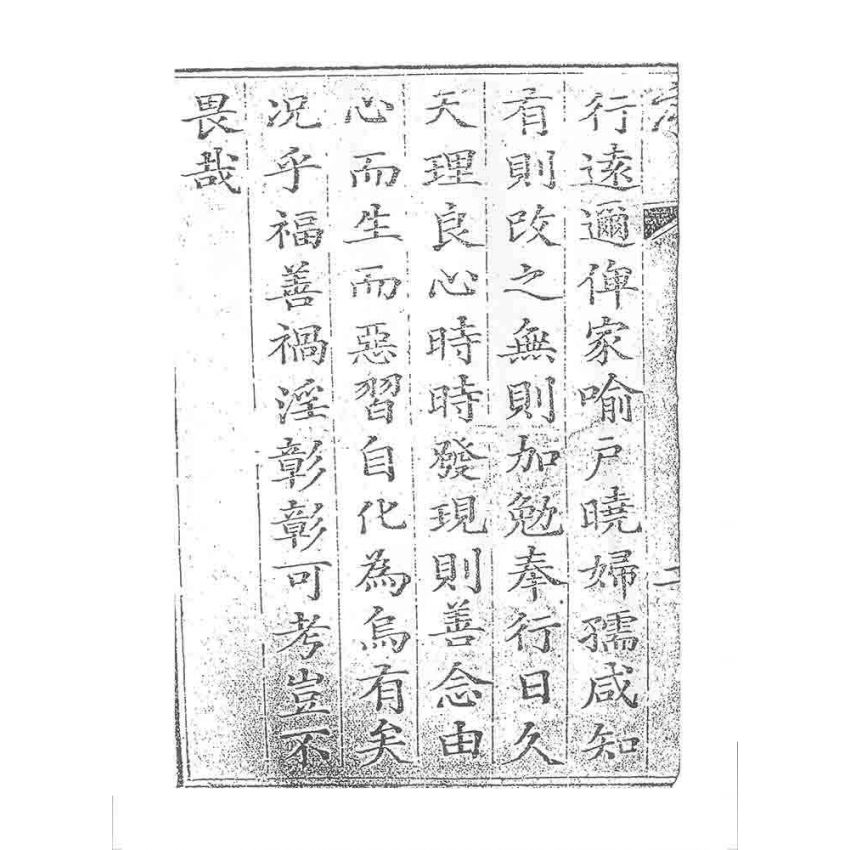 行遠邇俾家喻戶曉婦孺咸知
有則改之無則加勉奉行日久
天理良心時時發現則善念由
心而生而惡習自化為烏有矣
況乎福善禍淫彰彰可考豈不
畏哉